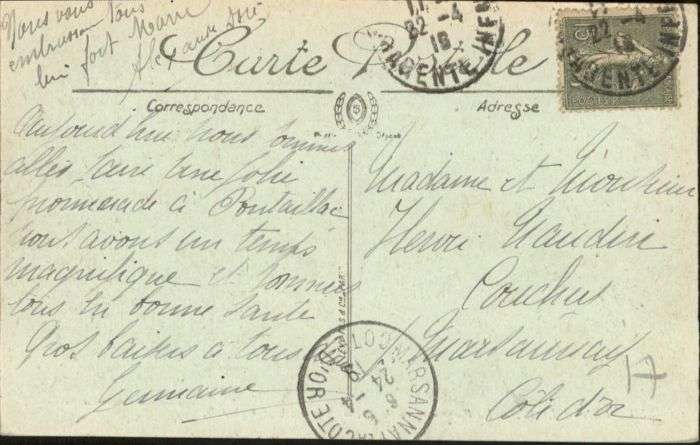 Nous vous
embrassons tous
bien fort Marie
Alexandre
Carte Postale
Correspondance
Adresse
Aujourd'hui nous sommes
allés faire une jolie
promenade à Pontaillac
nous avons un temps
magnifique et sommes
tous en bonne santé
Gros baisers à tous
Germaine
Madame et Monsieur
Henri Naudin
Couchey
Marsannay
Côte d'or
22 -4
CHARENTE-INFRE
22 -4
MARSANNAY LA COTE
COTE D'OR
24 - 4